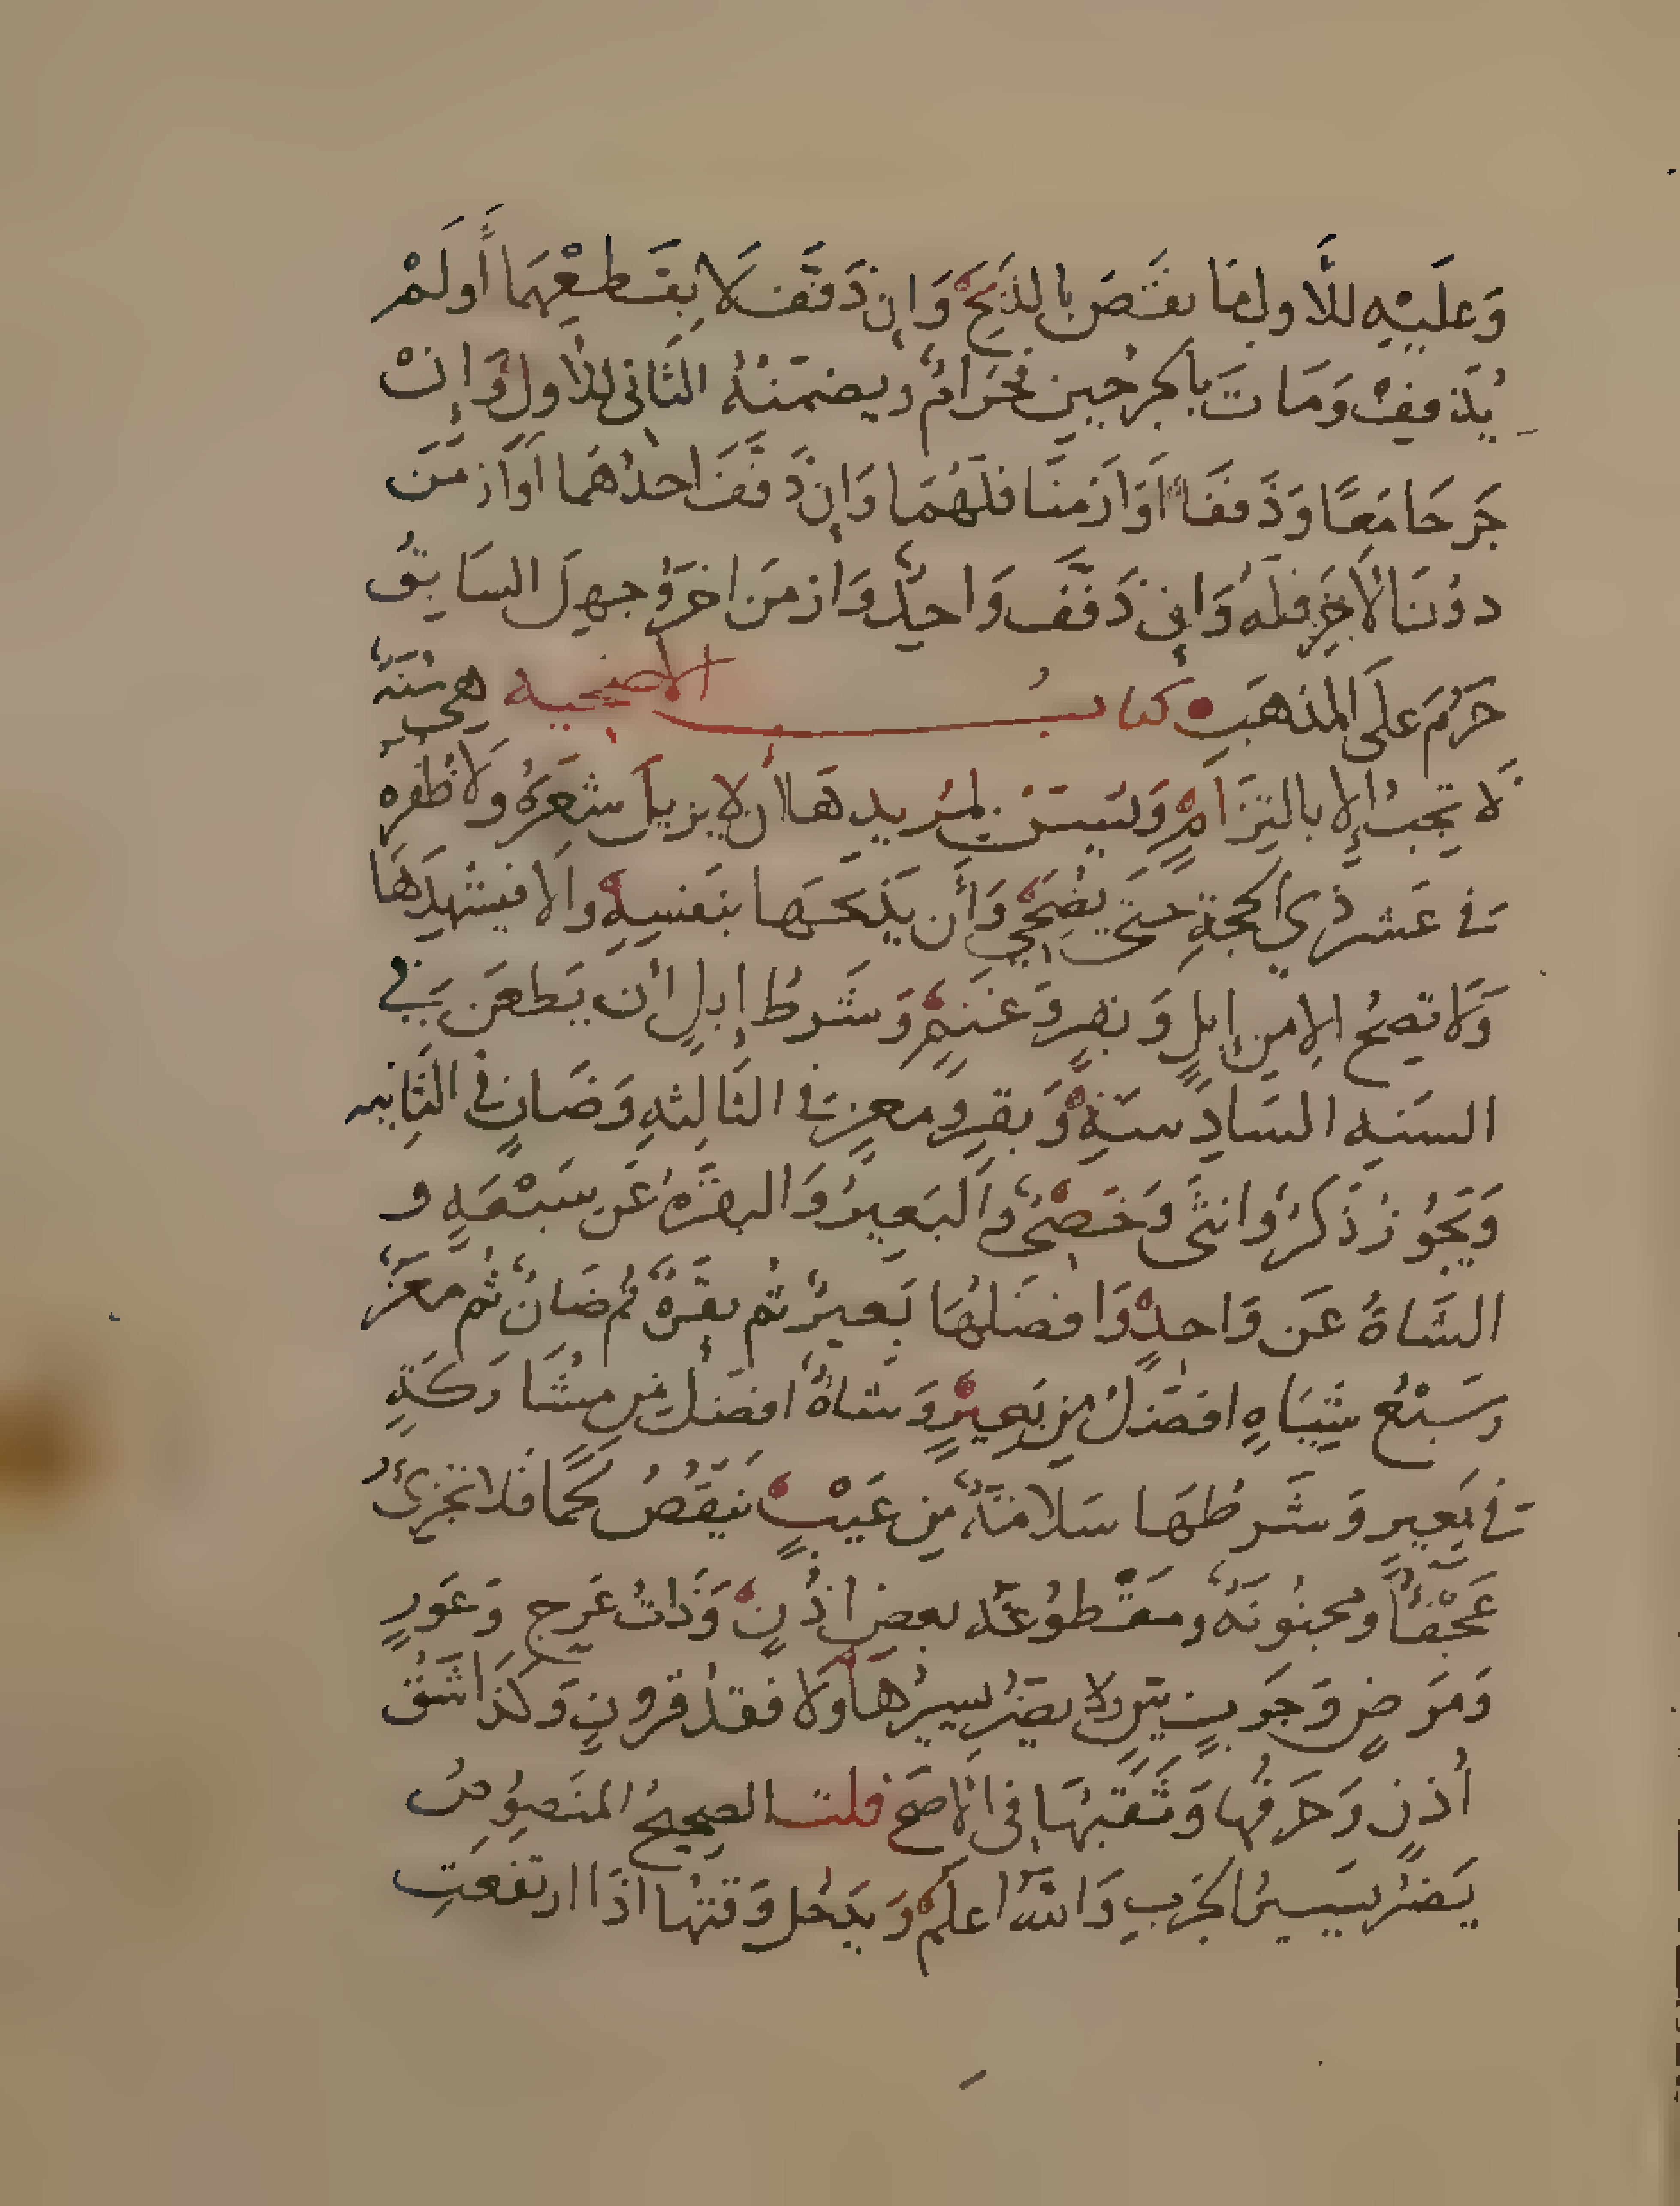 وَعلَيْهِ للأَول مَا نقَصَ بالذبحِ وَإن ذَفَّفَ لَا بِقَطْعِهِمَا أَو لَمْ
يُذَففْ وَمَاتَ بالجرحين فحَرَامٌ ويضمَنُهُ الثانى للأولِ وَإنْ
جَرحَا مَعًا وَذَففَا أَوْ أَزمنَا فلَهُمَا وَإن ذَفَّفَ احدُهُمَا اَو اَزمَن
دوُنَ الأخَرِ فلَهُ وَإن ذَفَّفَ وَاحِدٌ وَازمَن اخر وجهِلَ السَابِقُ
حَرُمَ علَى المذهَبِ كتابُ الأضحية هي سُنةٌ
لَا تجِبُ إِلا بالتِزَامٍ وَيُسَنُّ لمُريدِهَا ان لا يزيل شَعرَهُ وَلا ظفرَه
فى عَشر ذي الحجةِ حتى يضَحِّي وَأَن يَذبحَهَا بنَفسِهِ وَإلا فيشهدَهَا
وَلَا تصِحُ الا من إبلٍ وَبقرٍ وَغنَمٍ وَشَرطُ إبلٍ أن يَطعَن في
السَنه السَادِسَةِ وَبقرٍ ومعزٍ فى الثَالثهِ وَضَانٍ فى الثَانيه
وَيَجُوزُ ذَكرٌ وَانثَى وَخَصِىٌ وَالبَعِيرُ وَالبقرَةُ عَن سَبْعَةٍ و
الشَاةُ عَن وَاحدٍ وَافضَلُهَا بَعيرٌ ثم بقرَةٌ ثم ضَانٌ ثُم معزٌ
وسَبْعُ شِيَاهٍ افضَلُ مِن بَعيرٍ وَشاةٌ افضَلُ مِن مشَارَكَةٍ
فى بَعِيرٍ وَشَرطُهَا سَلامَةٌ مِن عَيْبٍ يَنقُصُ لَحمًا فلا تجزئُ
عَجْفَاءُ ومجنُونَةٌ ومَقْطوُعَة بعضِ اذُنٍ وَذَاتُ عَرجٍ وَعَورٍ
وَمَرَضٍ وَجَرَبٍ بَيّنٍ ولا يضرُ يسيرُهَا وَلا فقدُ قرونٍ وَكذَا شَقُ
أُذنٍ وَخَرقُها وَثَقبُهَا فى الأصَحِ قلت الصحِيحُ المنصُوصُ
يَضرُ يسَيرُ الجرَبِ وَاللهُ اعلمُ وَيدخُل وَقتُهَا اذَا ارتفعَتِ